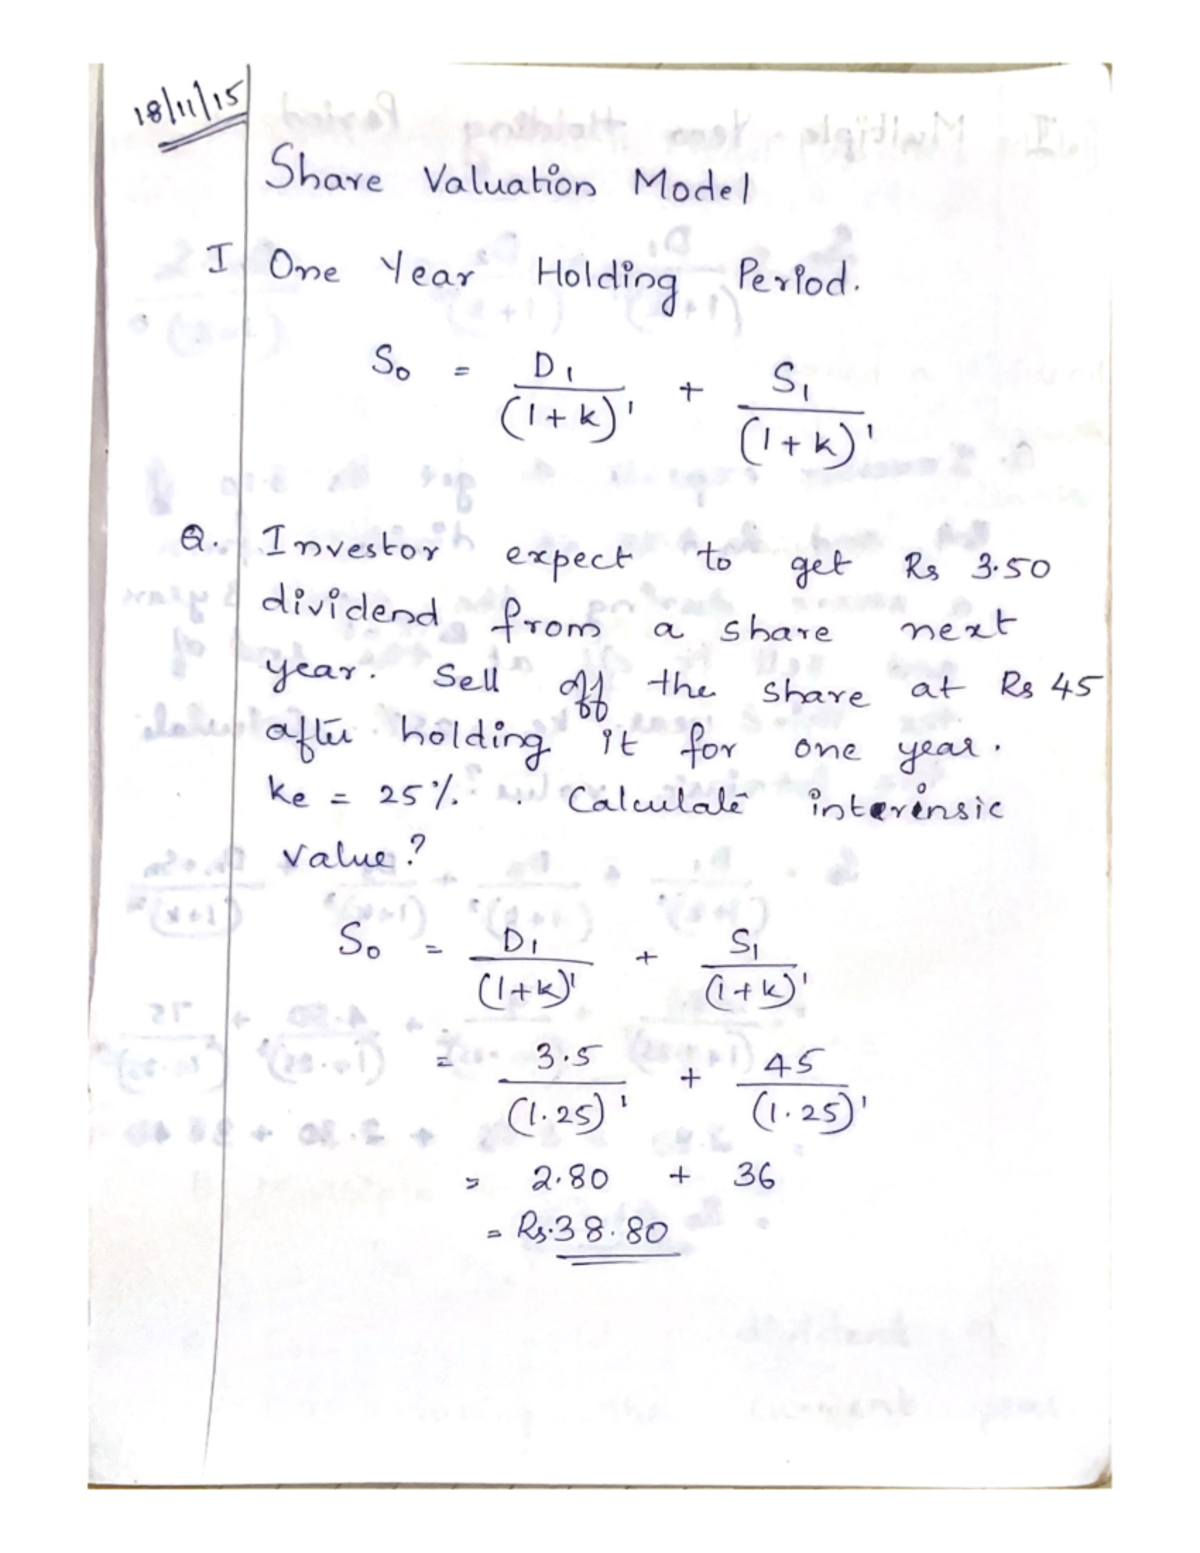 18/11/15
Share Valuation Model
I One Year Holding Period.
S₀ = D₁/(1+k)¹ + S₁/(1+k)¹
Q. Investor expect to get Rs 3.50
dividend from a share next
year. Sell off the share at Rs 45
after holding it for one year.
ke = 25%. Calculate interinsic
value?
S₀ = D₁/(1+k)¹ + S₁/(1+k)¹
= 3.5/(1.25)¹ + 45/(1.25)¹
= 2.80 + 36
= Rs.38.80